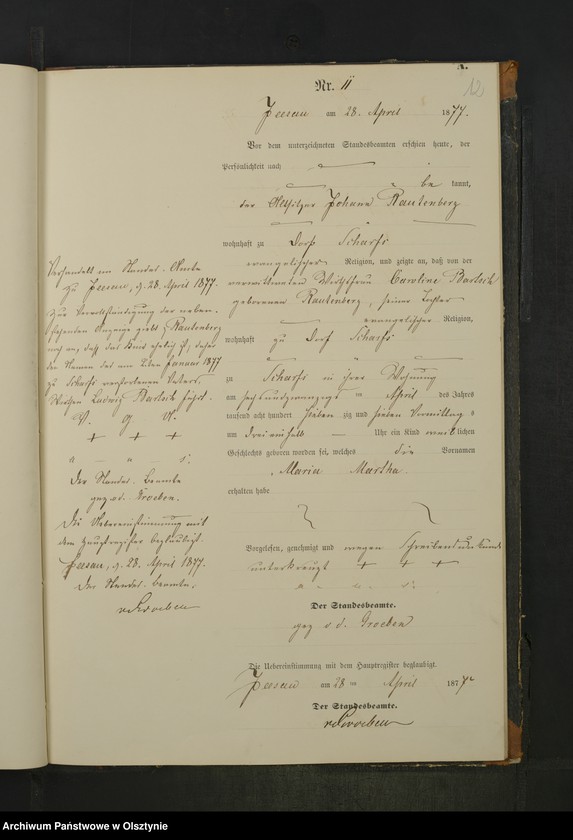 A.
12
Nr. 11
Jeesau am 28. April 1877.
Vor dem unterzeichneten Standesbeamten erschien heute, der
Persönlichkeit nach
be kannt,
der Altsitzer Johann Rautenberg
wohnhaft zu Dorf Scharfs
evangelischer Religion, und zeigte an, daß von der
verwittweten Wirthsfrau Caroline Bartsch
geborenen Rautenberg, seiner Tochter
evangelischer Religion,
wohnhaft zu Dorf Scharfs
zu Scharfs in ihrer Wohnung
am sechsundzwanzigsten April des Jahres
tausend acht hundert sieben zig und sieben Vormittags
um drei einhalb Uhr ein Kind weib lichen
Geschlechts geboren worden sei, welches die Vornamen
Maria Martha
erhalten habe
Vorgelesen, genehmigt und wegen Schreibensunkunde
unterkreuzt + + +
Der Standesbeamte.
gez v. d. Groeben
Die Uebereinstimmung mit dem Hauptregister beglaubigt.
Jeesau am 28 ten April 1877
Der Standesbeamte.
v d Groeben
Verhandelt im Standes-Amte
zu Jeesau, d. 28. April 1877.
Zur Vervollständigung der neben-
stehenden Anzeige giebt Rautenberg
noch an, daß das Kind ehelich ist, daher
den Namen des am 2ten Januar 1877
zu Scharfs verstorbenen Vaters,
Wirthen Ludwig Bartsch führt.
V. g. U.
+ + +
Der Standes-Beamte
gez v. d. Groeben.
Die Uebereinstimmung mit
dem Hauptregister beglaubigt.
Jeesau, d. 28 April 1877.
Der Standes-Beamte.
v d Groeben
Archiwum Państwowe w Olsztynie